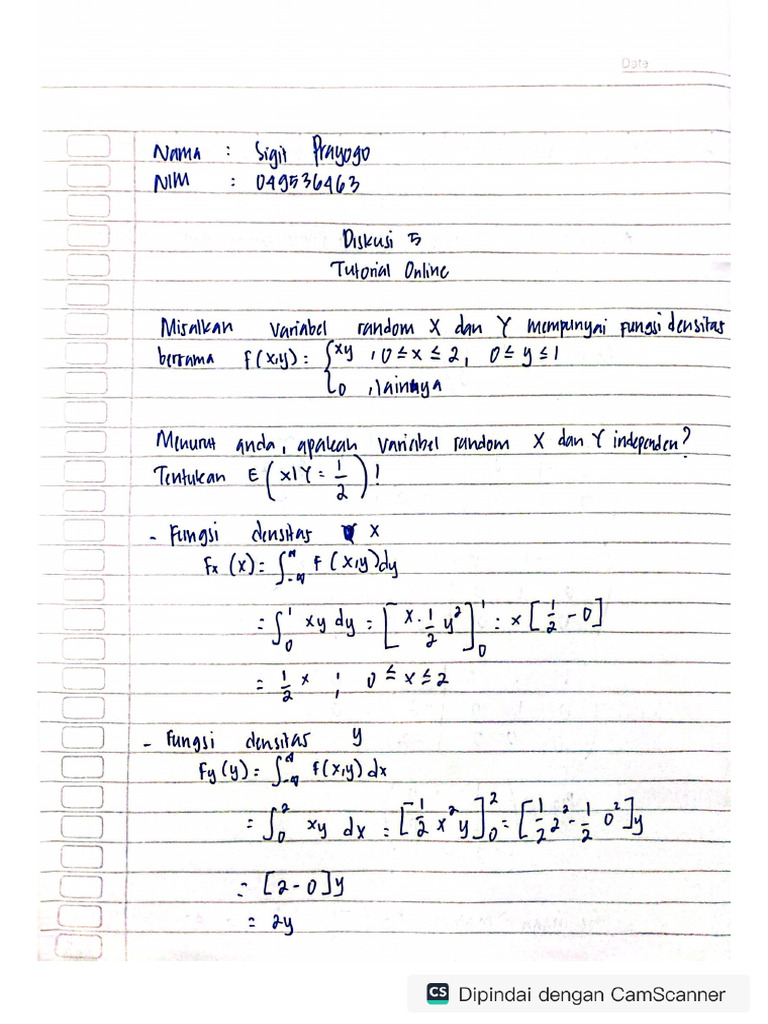 Date
Nama : Sigit Prayogo
NIM : 049536463
Diskusi 5
Tutorial Online
Misalkan variabel random X dan Y mempunyai fungsi densitas
bersama f(x,y) = { xy , 0 ≤ x ≤ 2, 0 ≤ y ≤ 1
0 , lainnya
Menurut anda, apakah variabel random X dan Y independen?
Tentukan E(X|Y = 1/2)!
- Fungsi densitas X
Fx (x) = ∫_{-∞}^{∞} f(x,y)dy
= ∫_0^1 xy dy = [x · 1/2 y²]_0^1 = x [1/2 - 0]
= 1/2 x ; 0 ≤ x ≤ 2
- Fungsi densitas y
Fy (y) = ∫_{-∞}^{∞} f(x,y) dx
= ∫_0^2 xy dx = [1/2 x² y]_0^2 = [1/2 2² - 1/2 0²]y
= [2-0]y
= 2y
CS Dipindai dengan CamScanner